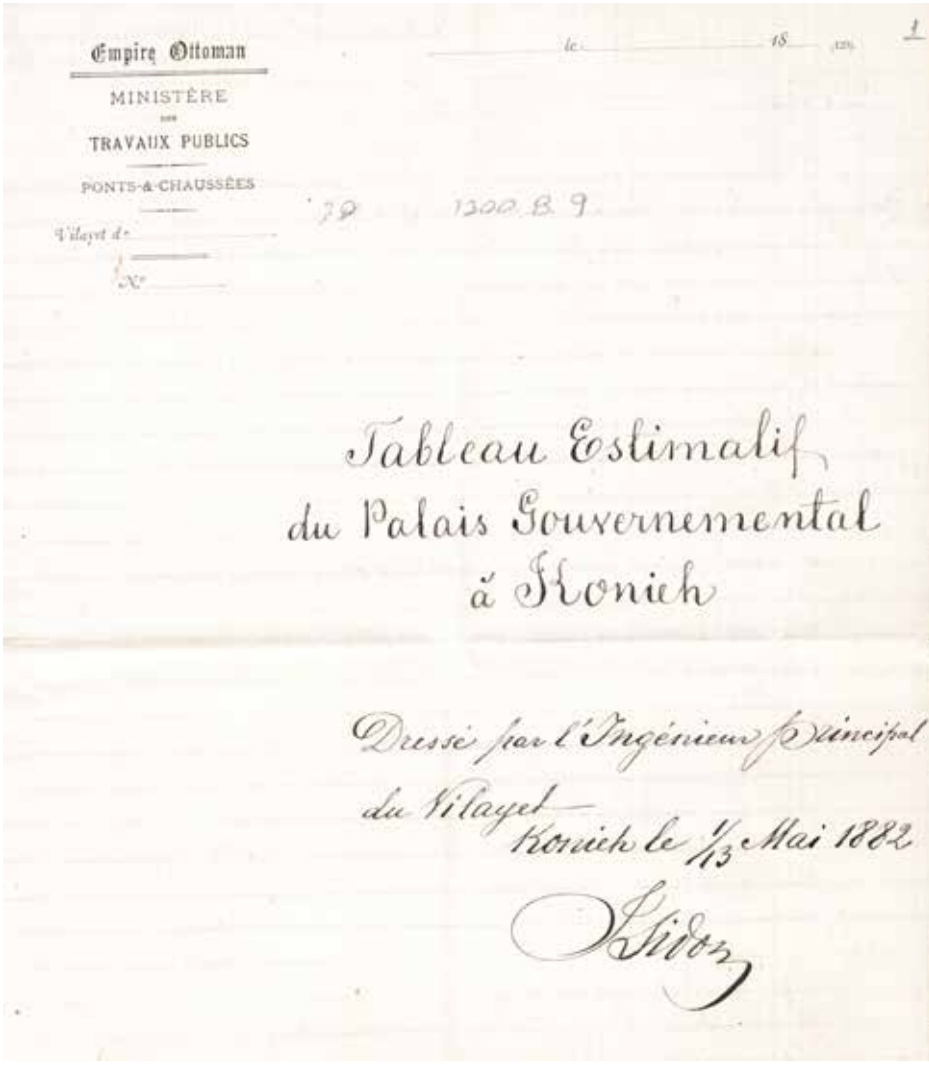 Empire Ottoman
le 18 129
1
MINISTÈRE
DES
TRAVAUX PUBLICS
PONTS-&-CHAUSSÉES
1300 B. 9.
Vilayet de
No
Tableau Estimatif
du Palais Gouvernemental
à Konieh
Dressé par l'Ingénieur Principal
du Vilayet
Konieh le 1/13 Mai 1882